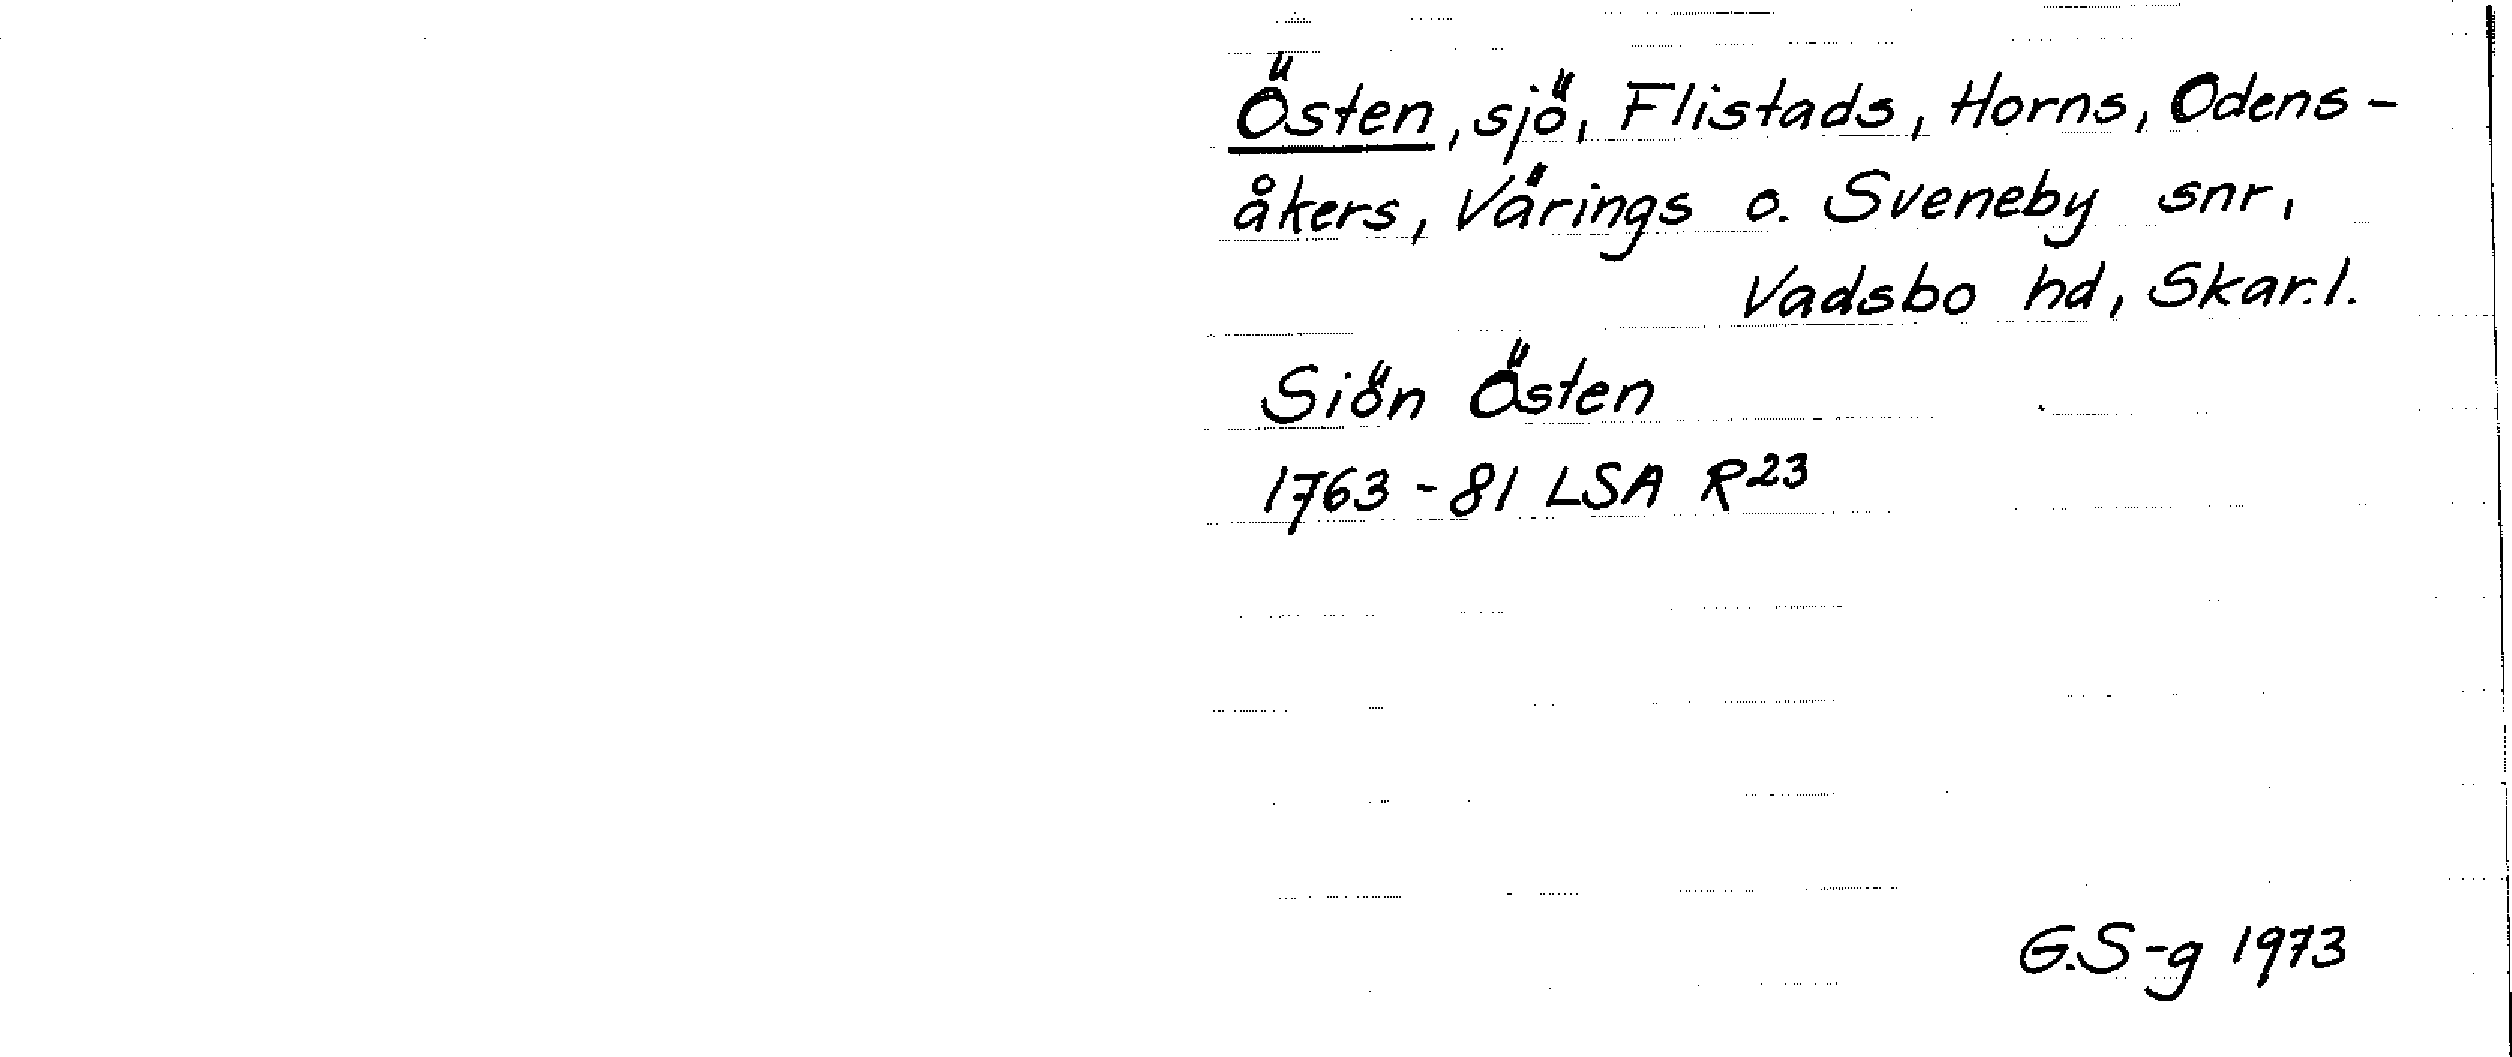 Östen, sjö, Flistads, Horns, Odens-
åkers, Värings o. Sveneby snr,
Vadsbo hd, Skar.l.
Siön Östen
1763-81 LSA R23
G.S-g 1973